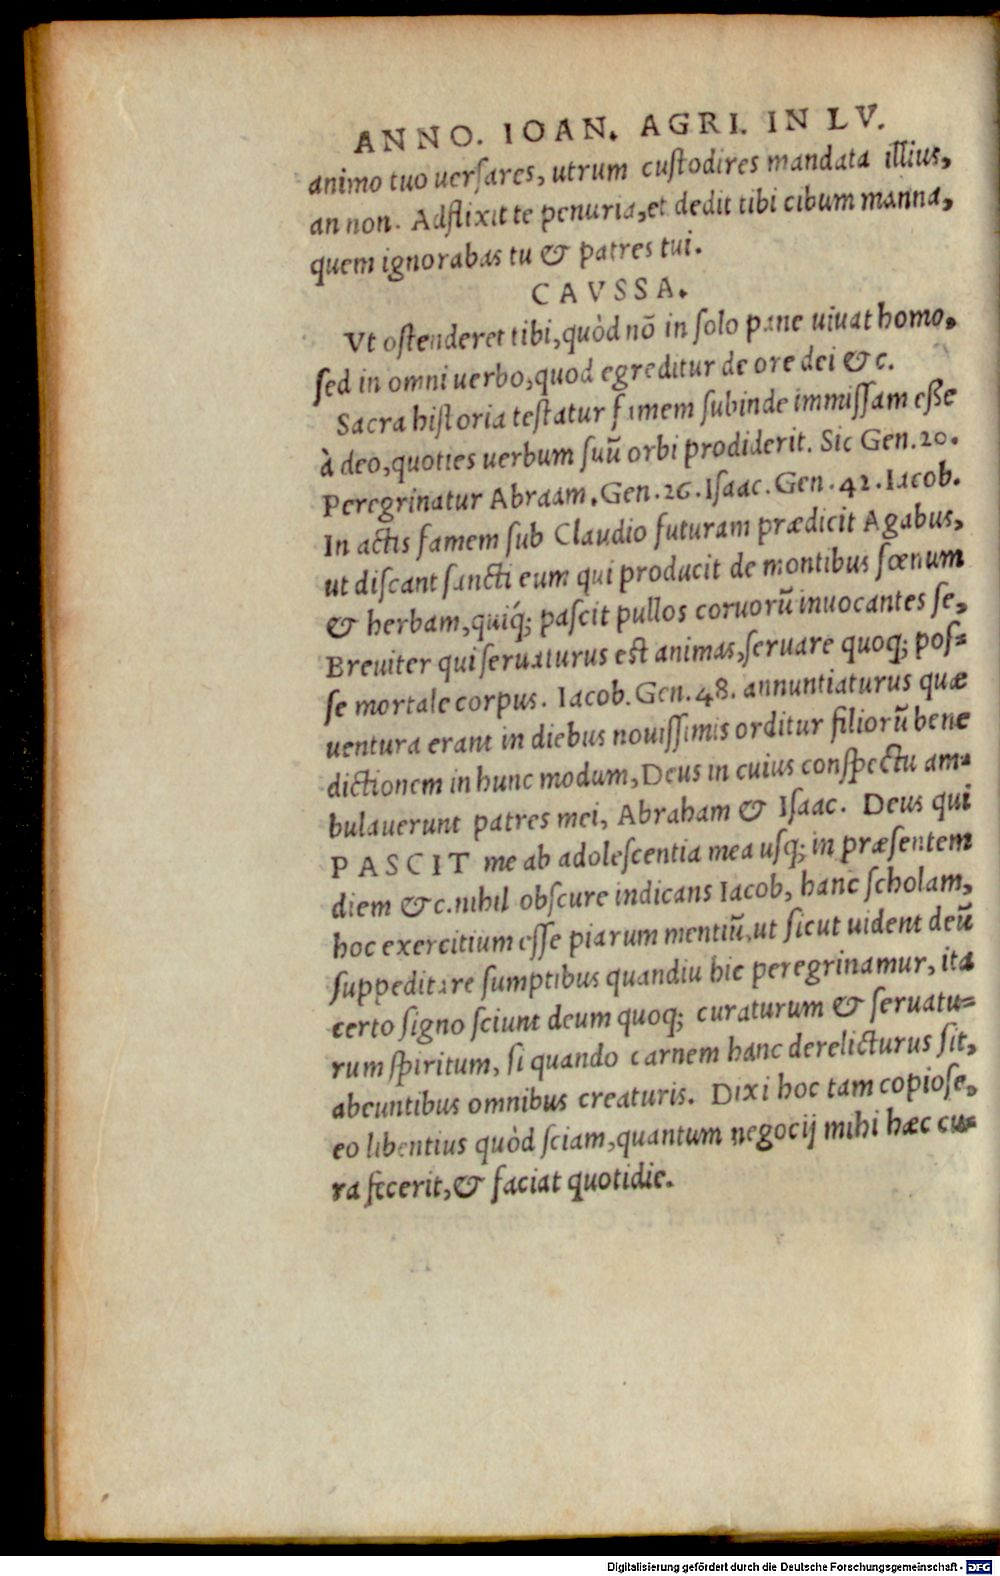 ANNO. IOAN. AGRI. IN LV.
animo tuo uersares, utrum custodires mandata illius,
an non. Adflixit te penuria, et dedit tibi cibum manna,
quem ignorabas tu & patres tui.
CAVSSA.
Vt ostenderet tibi, quòd nō in solo pane uiuat homo,
sed in omni uerbo, quod egreditur de ore dei &c.
Sacra historia testatur famem subinde immissam eße
à deo, quoties uerbum suū orbi prodiderit. Sic Gen. 20.
Peregrinatur Abraam. Gen. 26. Isaac. Gen. 42. Iacob.
In actis famem sub Claudio futuram prædicit Agabus,
ut discant sancti eum qui producit de montibus fœnum
& herbam, quiq́; pascit pullos coruorū inuocantes se,
Breuiter qui seruaturus est animas, seruare quoq; pos=
se mortale corpus. Iacob. Gen. 48. annuntiaturus quæ
uentura erant in diebus nouissimis orditur filiorū bene
dictionem in hunc modum, Deus in cuius conspectu am=
bulauerunt patres mei, Abraham & Isaac. Deus qui
PASCIT me ab adolescentia mea usq; in præsentem
diem &c. nihil obscure indicans Iacob, hanc scholam,
hoc exercitium esse piarum mentiū, ut sicut uident deū
suppeditare sumptibus quandiu hic peregrinamur, ita
certo signo sciunt deum quoq; curaturum & seruatu=
rum spiritum, si quando carnem hanc derelicturus sit,
abeuntibus omnibus creaturis. Dixi hoc tam copiose,
eo libentius quòd sciam, quantum negocij mihi hæc cu=
ra fecerit, & faciat quotidie.
Digitalisierung gefördert durch die Deutsche Forschungsgemeinschaft - DFG